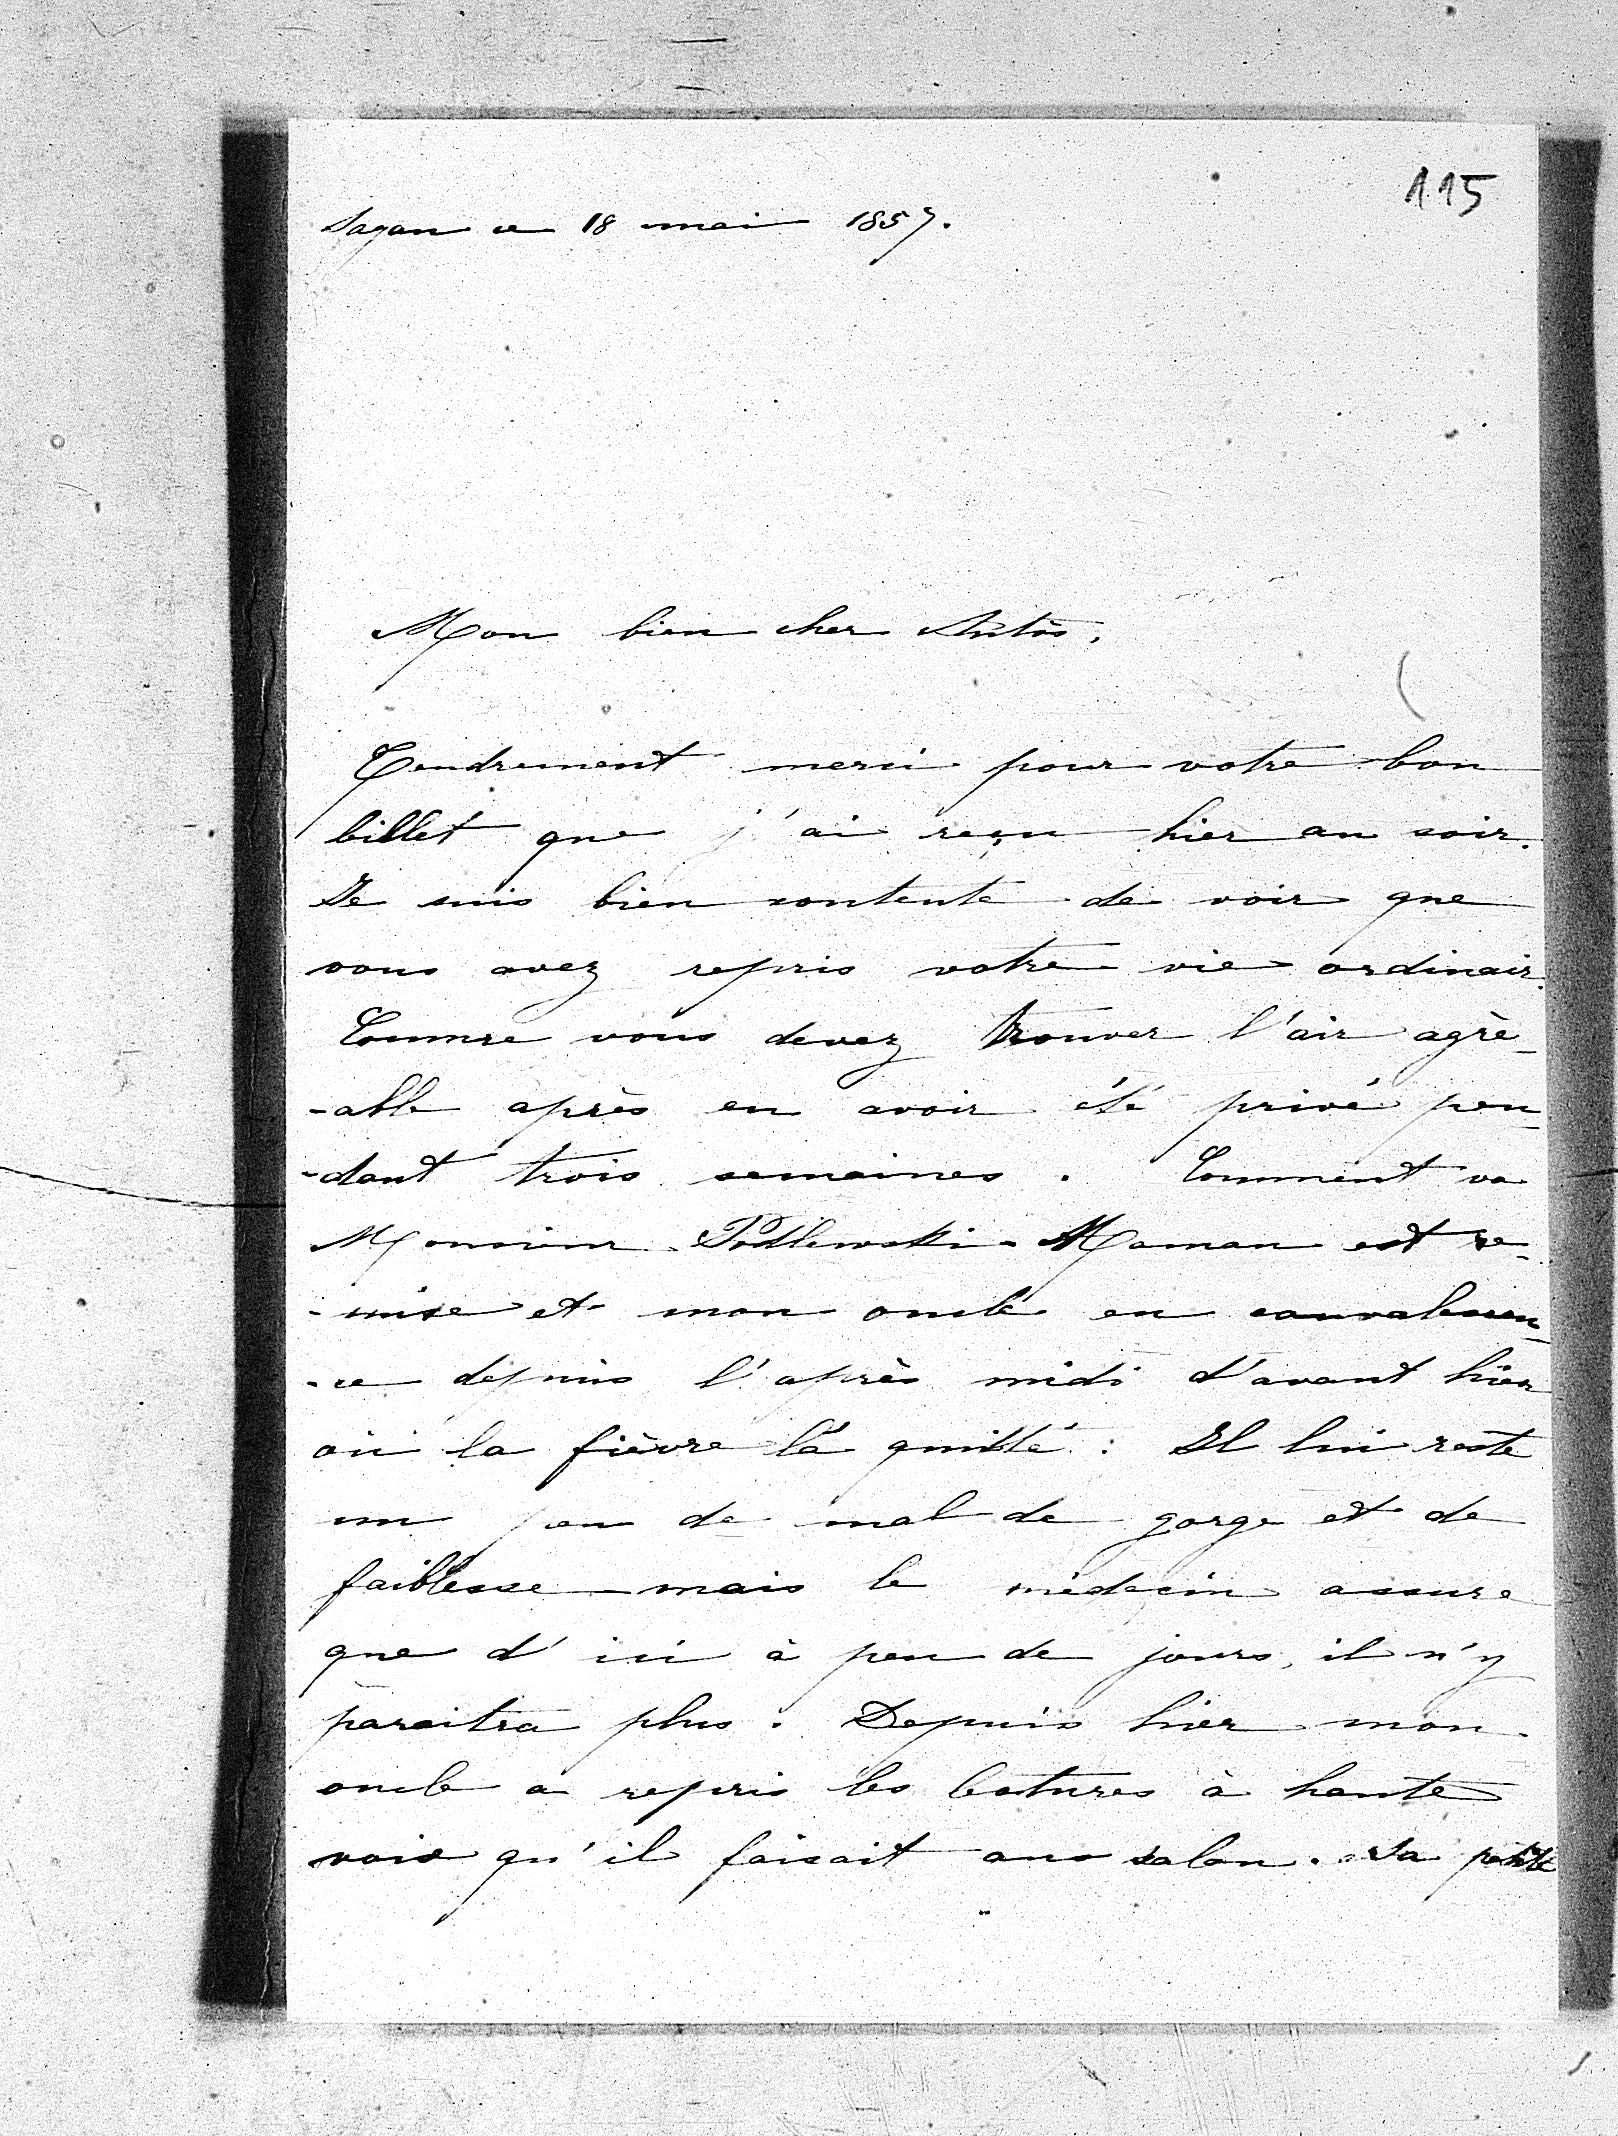 115
Sagan ce 18 mai 1857.
Mon bien cher Antôs,
Tendrement merci pour votre bon
billet que j'ai reçu hier au soir.
Je suis bien contente de voir que
vous avez repris votre vie ordinair.
Comme vous devez trouver l'air agrè-
-able après en avoir été privé pen-
-dant trois semaines. Comment va
Monsieur Podlewski. Maman est re-
-mise et mon oncle en convalescen-
-ce depuis l'après midi d'avant hier
où la fièvre l'a quitté : Il lui reste
un peu de mal de gorge et de
faiblesse - mais le médecin assure
que d'ici à peu de jours, il n'y
paraitra plus. Depuis hier mon
oncle a repris les lectures à haute
voix qu'il faisait au salon. Sa petite